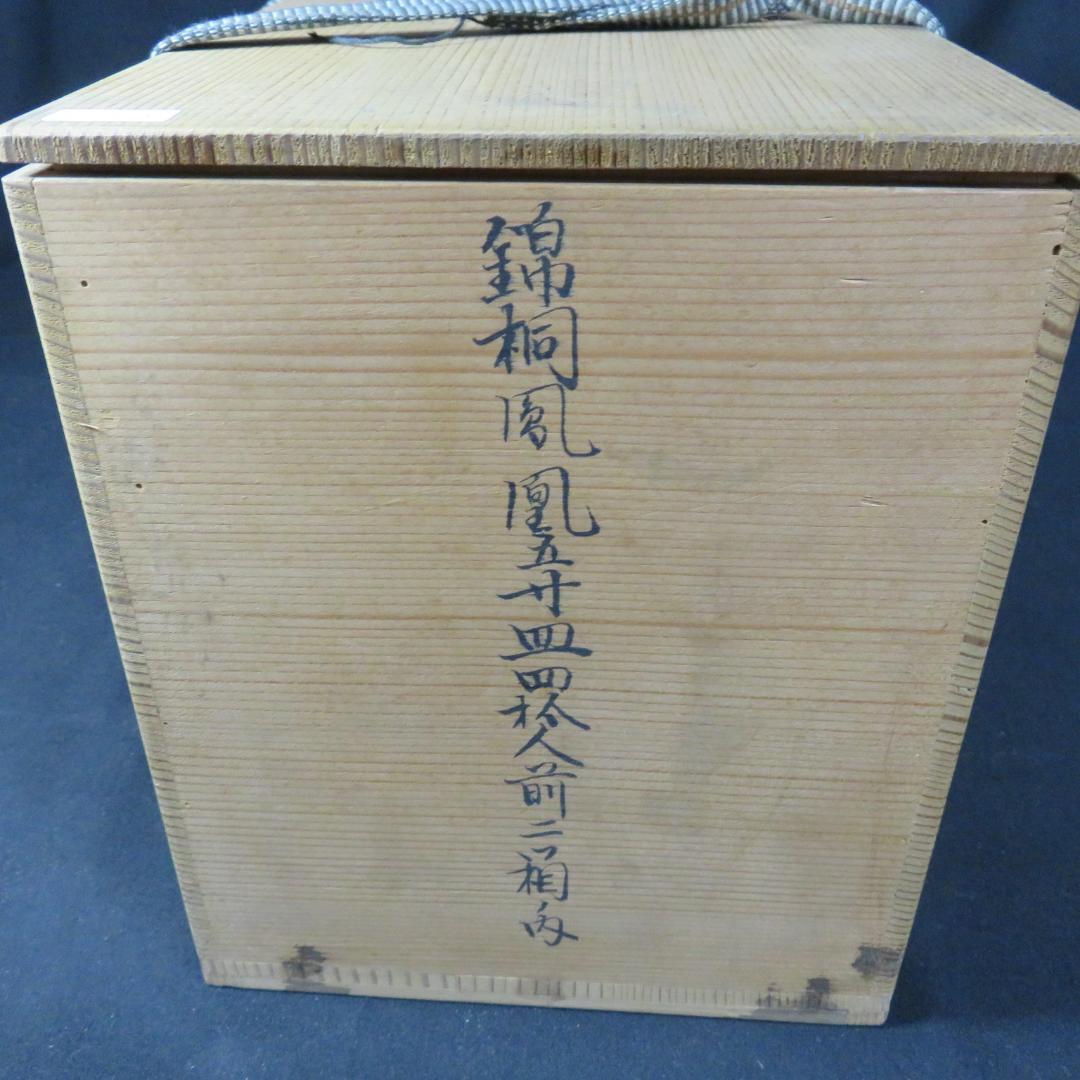 錦桐鳳凰五寸皿四拾人前二箱内